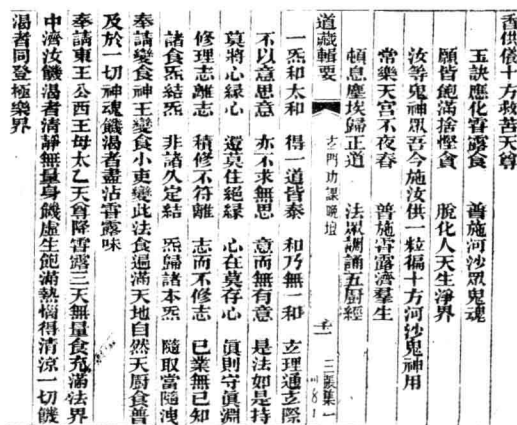 香供儀十方救苦天尊
玉訣應化普露食 普施河沙眾鬼魂
願皆飽滿捨慳貪 脫化人天生淨界
汝等鬼神眾吾今施汝供一粒徧十方河沙鬼神用
常樂天宮不夜春 普施甘露濟羣生
頓息塵埃歸正道 法眾調誦五厨經
道藏輯要 玄門功課晚壇 三 張集一
一炁和太和 得一道皆泰 和乃無一和 玄理通玄際
不以意思意 亦不求無思 意而無有意 是法如是持
莫將心緣心 還莫住絕緣 心在莫存心 真則守真淵
修理志離志 積修不符離 志而不修志 已業無已知
諸食炁結炁 非諸久定結 炁歸諸本炁 隨取當隨洩
奉請變食神王變食小吏變此法食遍滿天地自然天厨食普
及於一切神魂饑渴者盡沾甘露味
奉請東王公西王母太乙天尊降甘露三天無量食充滿法界
中濟汝饑渴者清靜無量身饑虛生飽滿熱惱得清涼一切饑
渴者同登極樂界